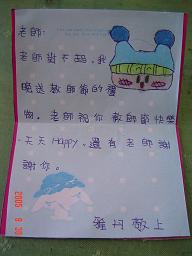 老師:
老師對不起,我
晚送教師節的禮
物。老師祝你教師節快樂
天天Happy,還有老師謝
謝你。
敬上
2005 9 30